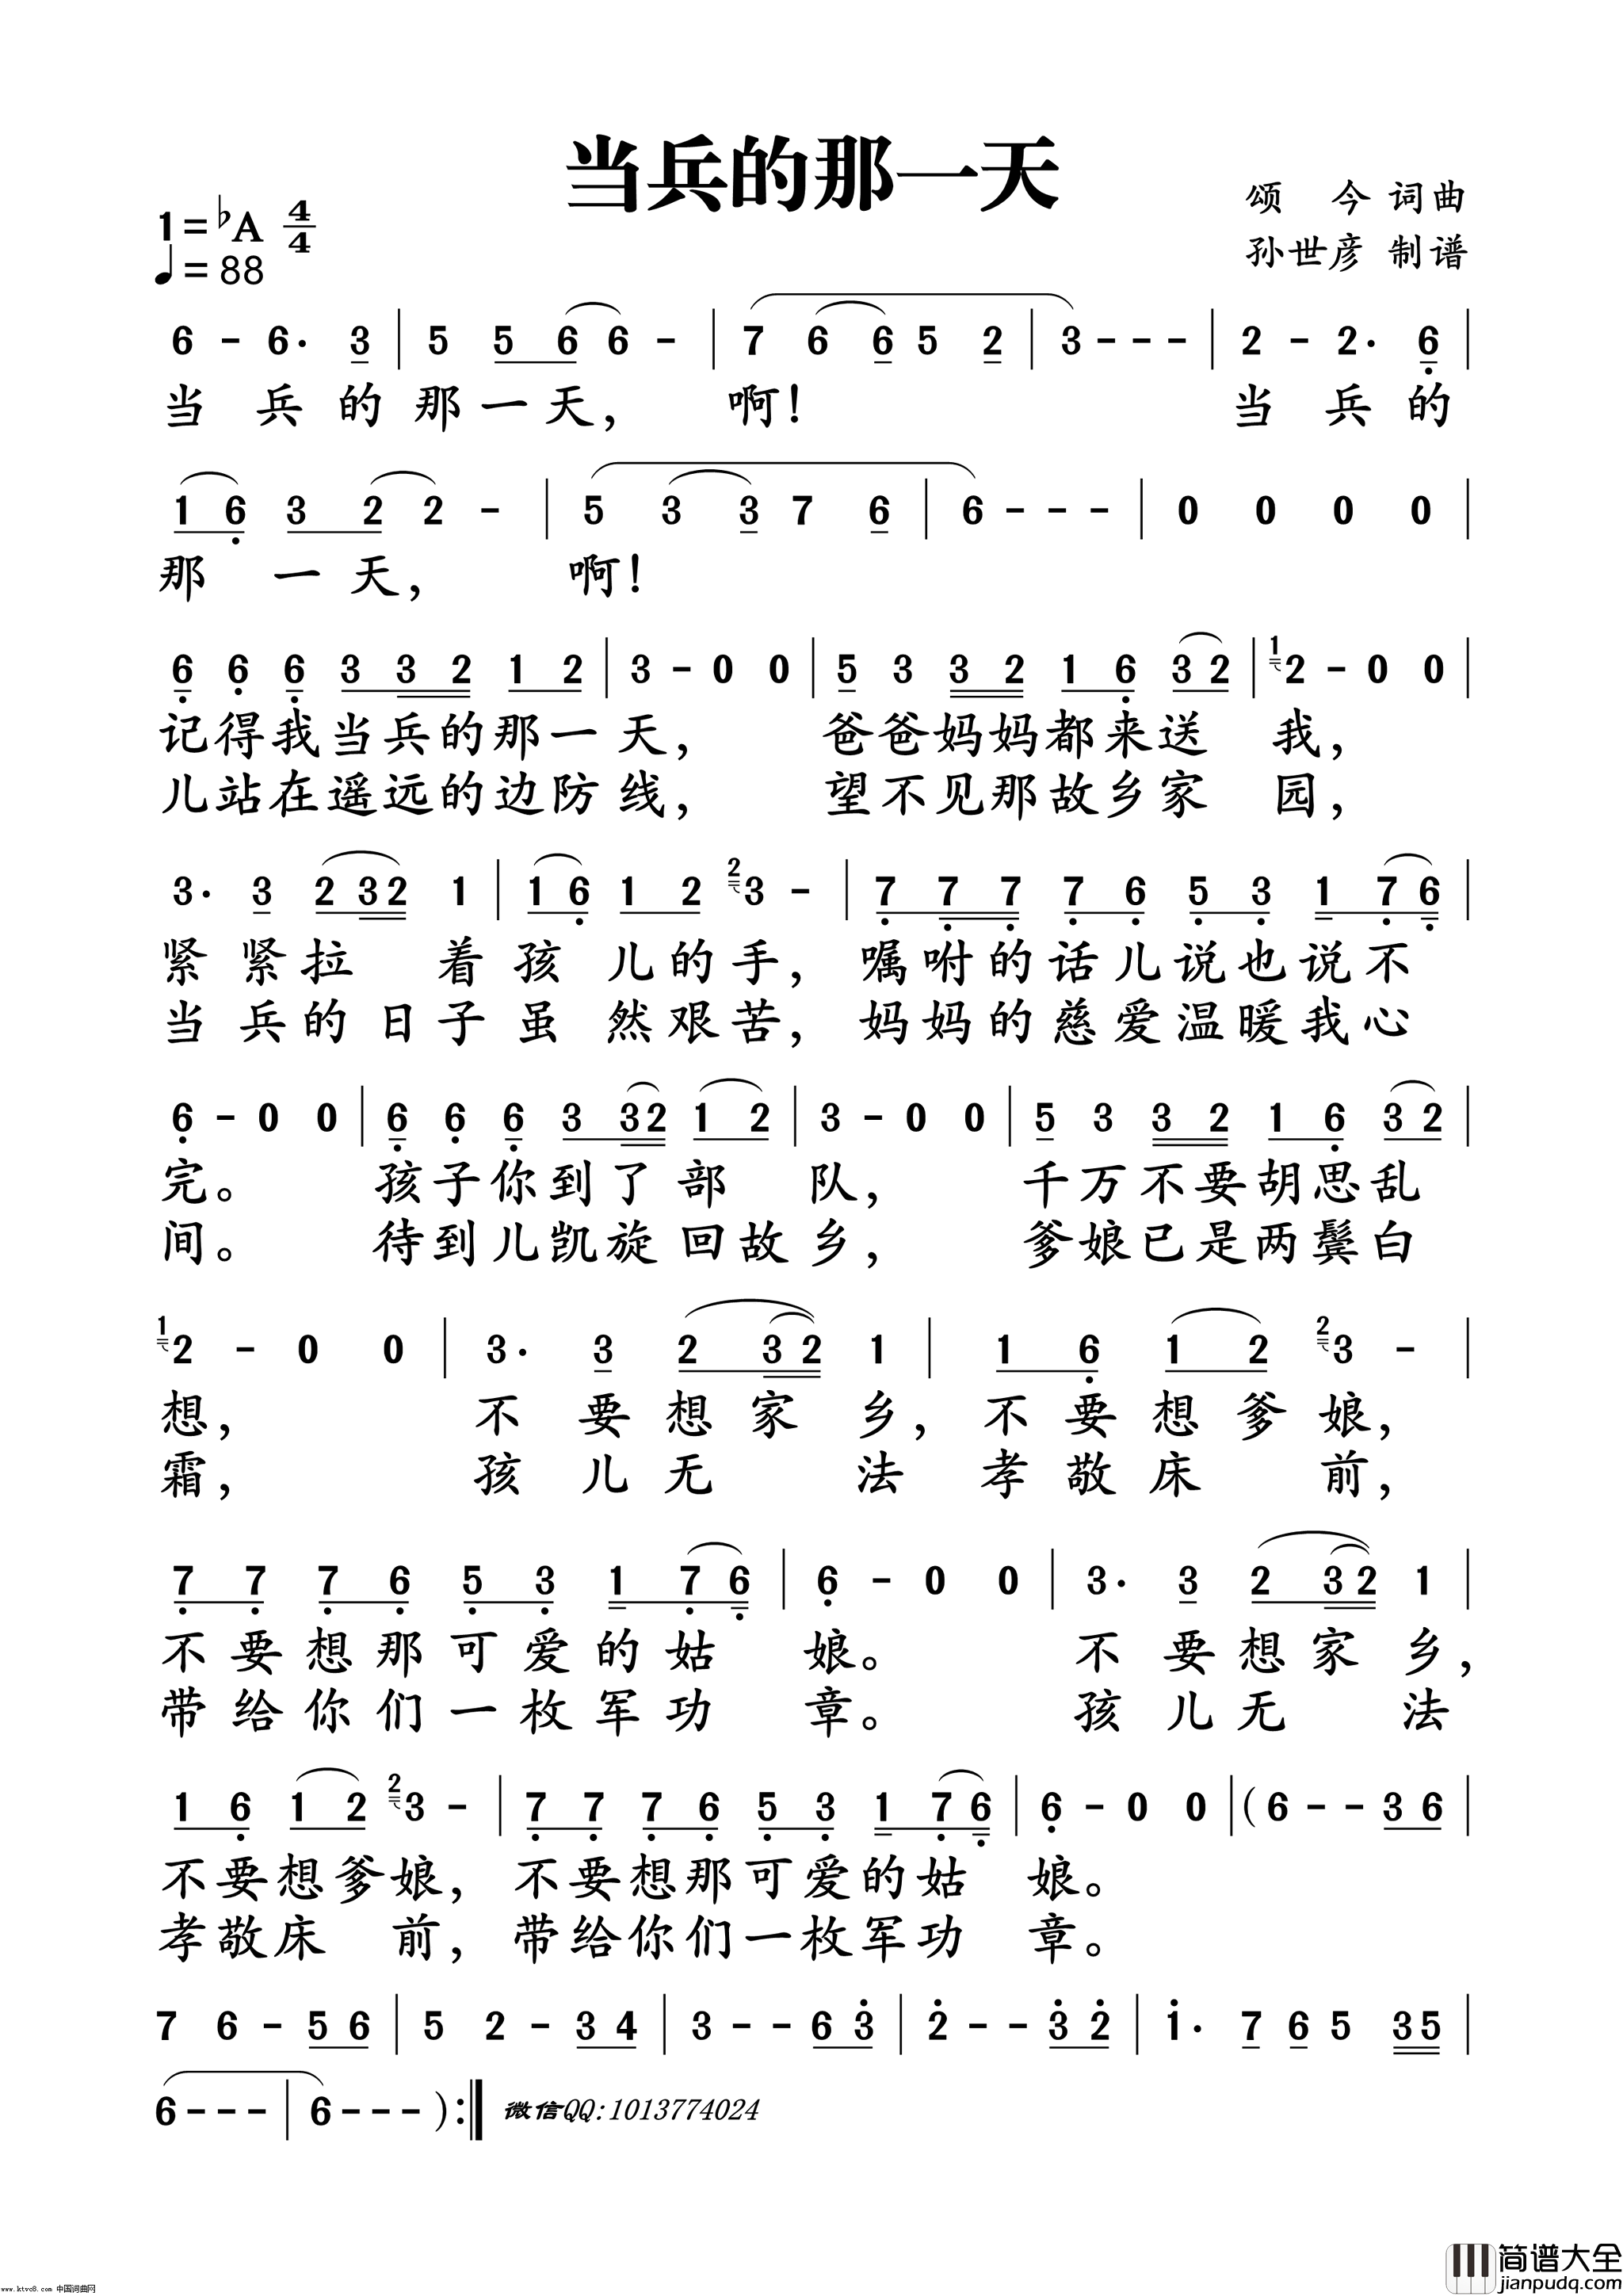 当兵的那一天
颂 今 词曲
1=♭A 4/4
孙世彦 制谱
♩=88
6 - 6. 3 | 5 5 6 6 - | 7 6 6 5 2 | 3 - - - | 2 - 2. 6 |
当 兵 的 那 一 天， 啊！ 当 兵 的
1 6 3 2 2 - | 5 3 3 7 6 | 6 - - - | 0 0 0 0 |
那 一 天， 啊！
6 6 6 3 3 2 1 2 | 3 - 0 0 | 5 3 3 2 1 6 3 2 | 1 2 - 0 0 |
记得我当兵的那一天， 爸爸妈妈都来送 我，
儿站在遥远的边防线， 望不见那故乡家 园，
3. 3 2 3 2 1 | 1 6 1 2 2 3 - | 7 7 7 7 6 5 3 1 7 6 |
紧 紧 拉 着 孩 儿 的 手， 嘱咐的话儿说也说不
当 兵 的 日 子 虽 然 艰 苦， 妈妈的慈爱温暖我心
6 - 0 0 | 6 6 6 3 3 2 1 2 | 3 - 0 0 | 5 3 3 2 1 6 3 2 |
完。 孩子你到了部 队， 千万不要胡思乱
间。 待到儿凯旋回故乡， 爹娘已是两鬓白
1 2 - 0 0 | 3. 3 2 3 2 1 | 1 6 1 2 2 3 - |
想， 不 要 想 家 乡， 不 要 想 爹 娘，
霜， 孩 儿 无 法 孝 敬 床 前，
7 7 7 6 5 3 1 7 6 | 6 - 0 0 | 3. 3 2 3 2 1 |
不 要 想 那 可 爱 的 姑 娘。 不 要 想 家 乡，
带 给 你 们 一 枚 军 功 章。 孩 儿 无 法
1 6 1 2 2 3 - | 7 7 7 6 5 3 1 7 6 | 6 - 0 0 | ( 6 - - 3 6 |
不要想爹娘， 不要想那可爱的姑 娘。
孝敬床 前， 带给你们一枚军功 章。
7 6 - 5 6 | 5 2 - 3 4 | 3 - - 6 3 | 2 - - 3 2 | 1. 7 6 5 3 5 |
6 - - - | 6 - - - ) :|| 微信QQ:1013774024
简谱大全
jianpudq.com
www.ktvc8.com 中国词曲网